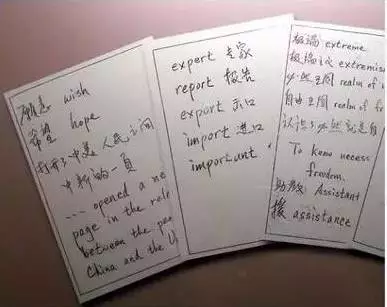 愿意 wish
希望 hope
打开了中美人民之间
中新的一頁
... opened a ne
page in the rele
between the peo
China and the U
expert 专家
report 报告
export 出口
import 进口
important
极端 extreme
极端 extremis
必然王国 realm of n
自由王国 realm of fr
认识了必然就是自
To know necess
freedom.
助教 Assistant
援 assistance